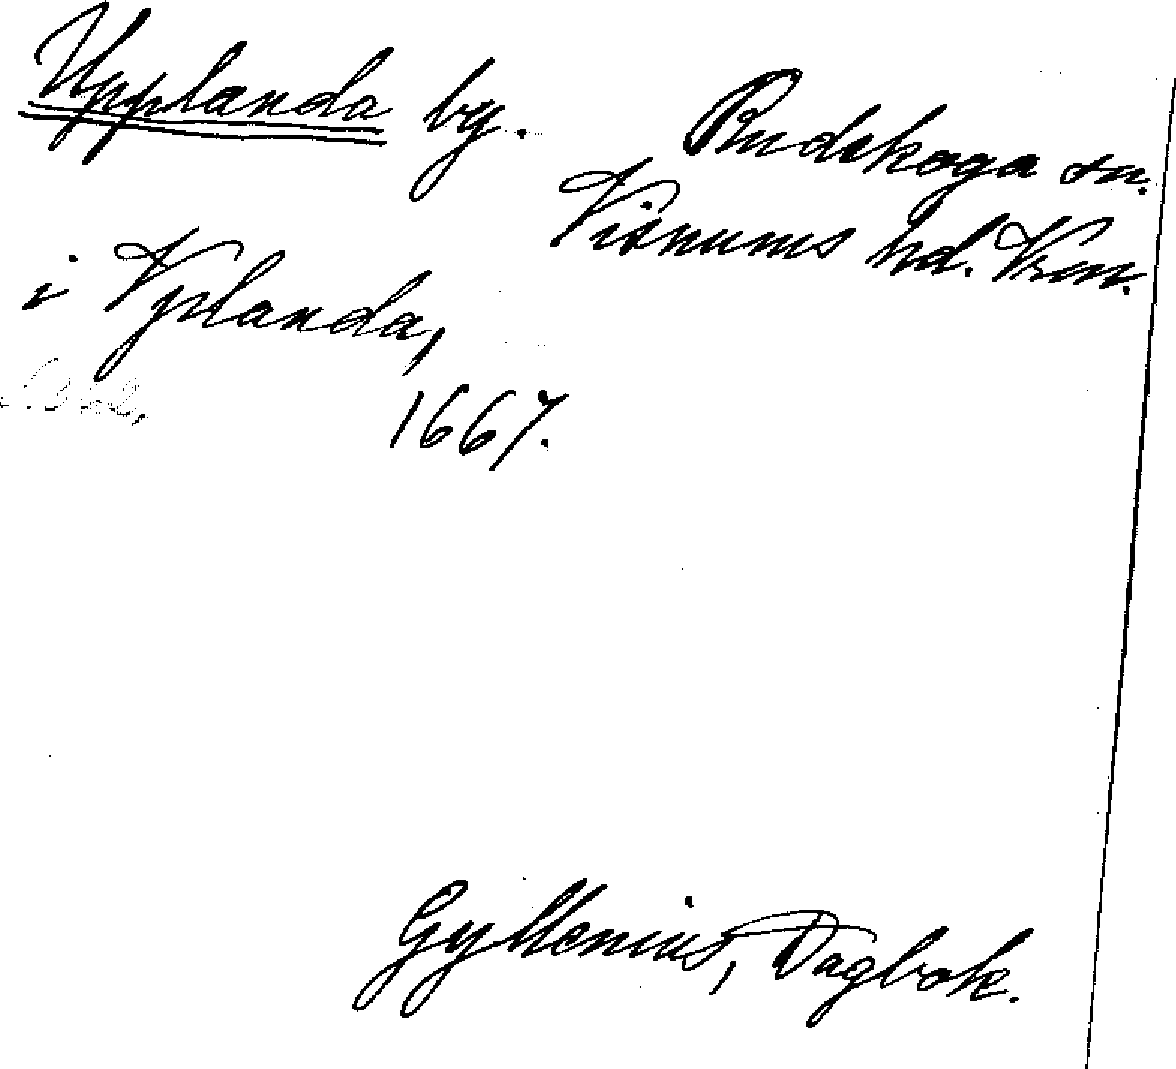 Upplanda by.
Rudskoga sn.
Visnums hd. Vrm.
i Vplanda,
1667.
Gyllenius, Dagbok.